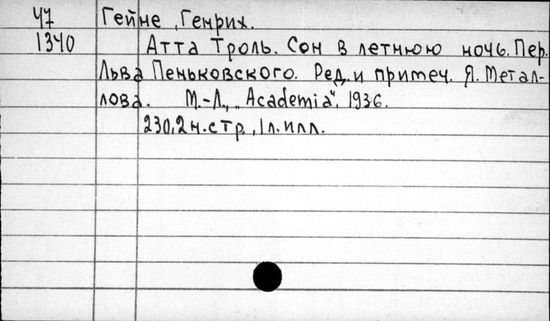 47 Гейне, Генрих.
1340 Атта Троль. Сон в летнюю ночь. Пер.
Льва Пеньковского. Ред. и примеч. Я. Метал-
лова. М.-Л., "Academia", 1936.
230,2 н. стр., 1 л. илл.